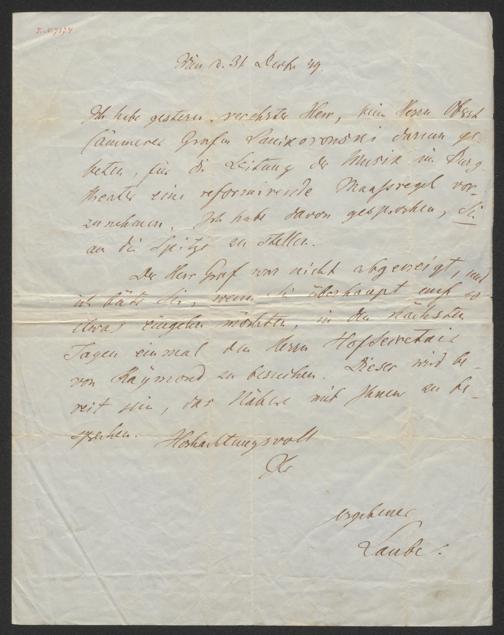 Wien d. 31 Decbr 49.
Ich habe gestern, verehrter Herr, beim Herrn Oberst
Kämmerer Grafen Lanckoronski darum ge-
beten, für die Leitung der Musik im Burg
theater eine reformirende Maaßregel vor-
zunehmen. Ich habe davon gesprochen, Sie
an die Spitze zu stellen.
Der Herr Graf war nicht abgeneigt, und
ich bäte Sie, wenn Sie überhaupt auf so
etwas eingehen möchten, in den nächsten
Tagen einmal den Herrn Hofsecretair
von Raymond zu besuchen. Dieser wird be-
reit sein, das Nähere mit Ihnen zu be-
sprechen.
Hochachtungsvoll
Ihr
ergebener
Laube.